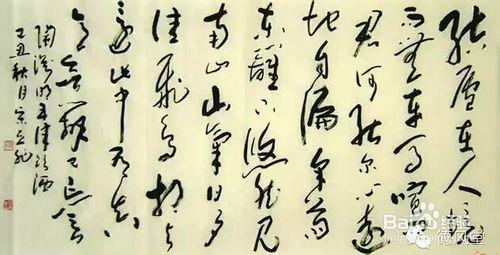 結廬在人境
而無車馬喧
君何能爾心遠
地自偏采菊
東籬下悠然見
南山山氣日夕
佳飛鳥相與
還此中有真
意欲辨已忘言
陶淵明五律飲酒
己丑秋月宗立
Baidu经验
德风堂